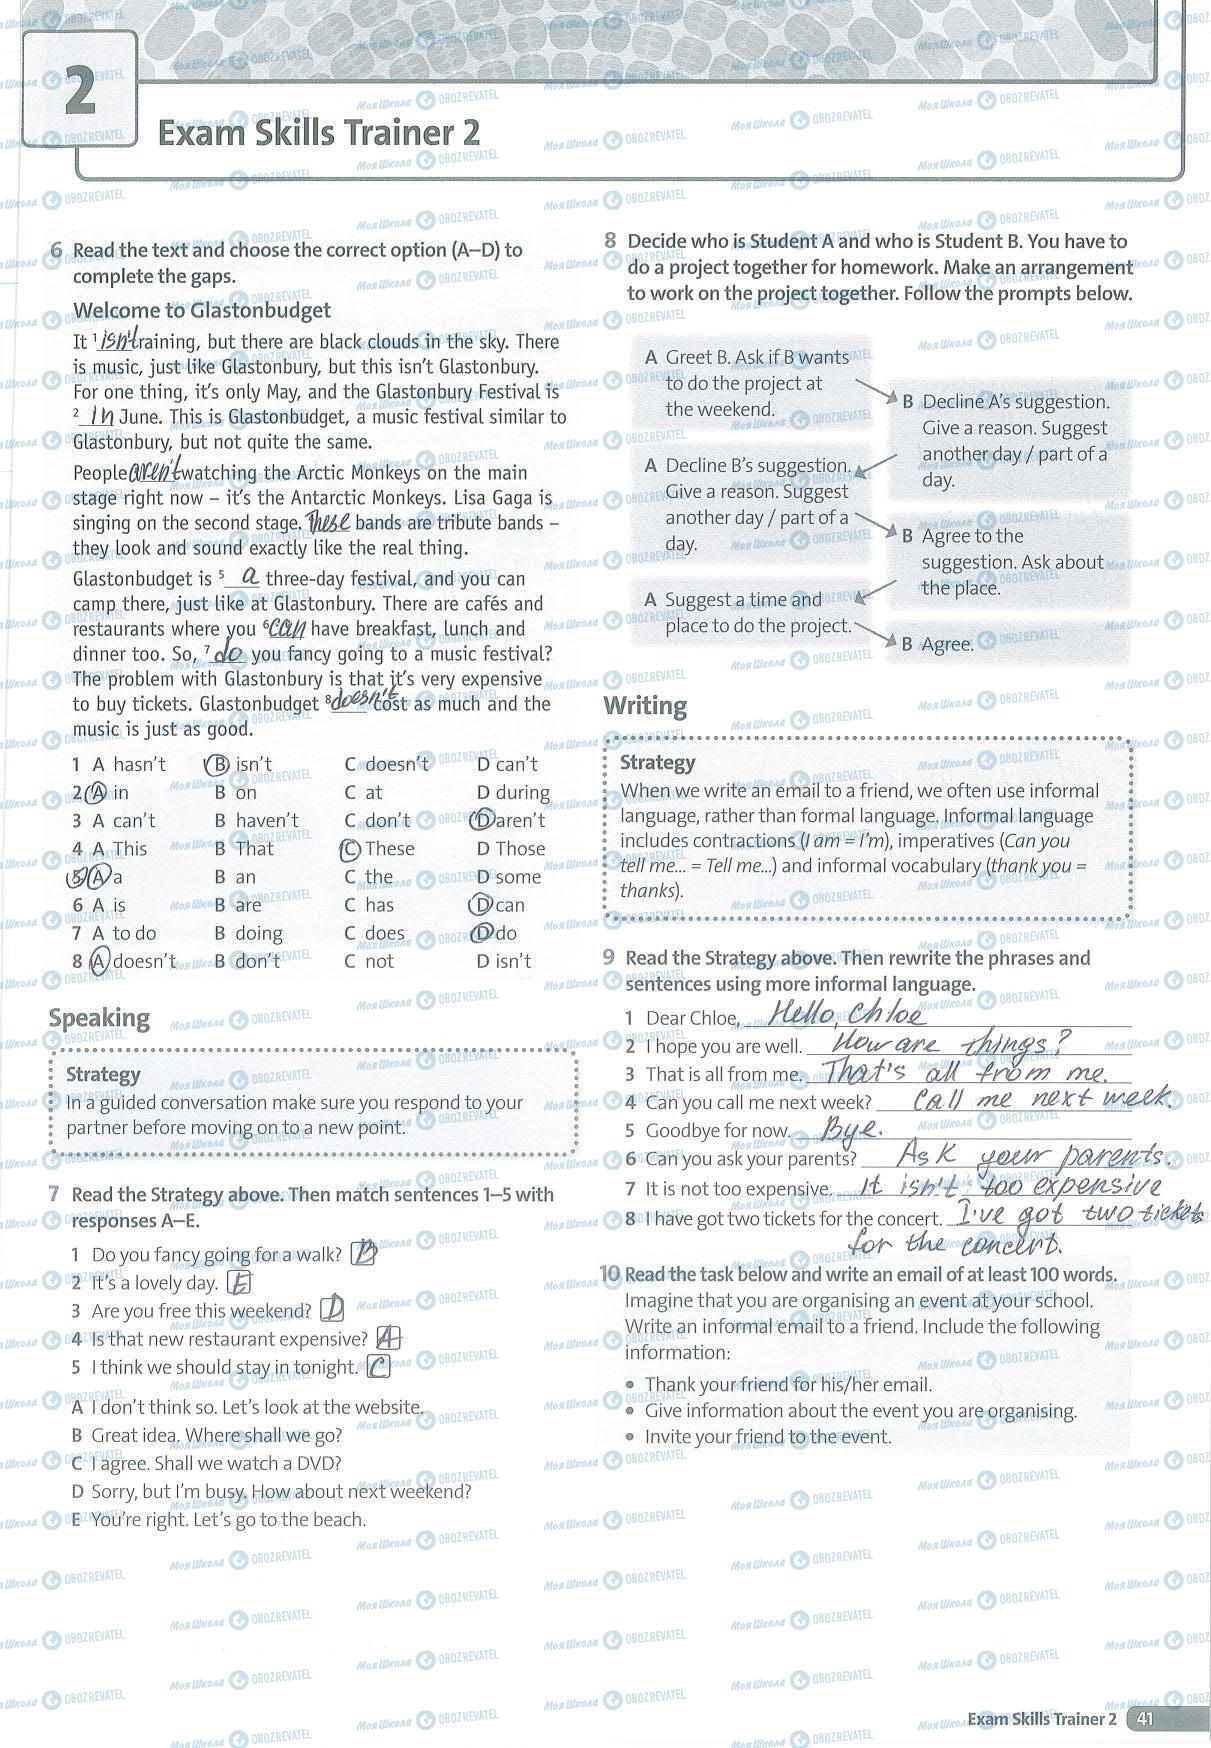 2
Exam Skills Trainer 2
6 Read the text and choose the correct option (A–D) to
complete the gaps.
Welcome to Glastonbudget
It ¹ isn't raining, but there are black clouds in the sky. There
is music, just like Glastonbury, but this isn't Glastonbury.
For one thing, it's only May, and the Glastonbury Festival is
² in June. This is Glastonbudget, a music festival similar to
Glastonbury, but not quite the same.
People aren't watching the Arctic Monkeys on the main
stage right now – it's the Antarctic Monkeys. Lisa Gaga is
singing on the second stage. These bands are tribute bands –
they look and sound exactly like the real thing.
Glastonbudget is ⁵ a three-day festival, and you can
camp there, just like at Glastonbury. There are cafés and
restaurants where you ⁶ can have breakfast, lunch and
dinner too. So, ⁷ do you fancy going to a music festival?
The problem with Glastonbury is that it's very expensive
to buy tickets. Glastonbudget ⁸ doesn't cost as much and the
music is just as good.
1 A hasn't B isn't C doesn't D can't
2 A in B on C at D during
3 A can't B haven't C don't D aren't
4 A This B That C These D Those
5 A a B an C the D some
6 A is B are C has D can
7 A to do B doing C does D do
8 A doesn't B don't C not D isn't
Speaking
Strategy
In a guided conversation make sure you respond to your
partner before moving on to a new point.
7 Read the Strategy above. Then match sentences 1–5 with
responses A–E.
1 Do you fancy going for a walk? B
2 It's a lovely day. E
3 Are you free this weekend? D
4 Is that new restaurant expensive? A
5 I think we should stay in tonight. C
A I don't think so. Let's look at the website.
B Great idea. Where shall we go?
C I agree. Shall we watch a DVD?
D Sorry, but I'm busy. How about next weekend?
E You're right. Let's go to the beach.
8 Decide who is Student A and who is Student B. You have to
do a project together for homework. Make an arrangement
to work on the project together. Follow the prompts below.
A Greet B. Ask if B wants
to do the project at
the weekend.
B Decline A's suggestion.
Give a reason. Suggest
another day / part of a
day.
A Decline B's suggestion.
Give a reason. Suggest
another day / part of a
day.
B Agree to the
suggestion. Ask about
the place.
A Suggest a time and
place to do the project.
B Agree.
Writing
Strategy
When we write an email to a friend, we often use informal
language, rather than formal language. Informal language
includes contractions (I am = I'm), imperatives (Can you
tell me... = Tell me...) and informal vocabulary (thank you =
thanks).
9 Read the Strategy above. Then rewrite the phrases and
sentences using more informal language.
1 Dear Chloe, Hello, Chloe
2 I hope you are well. How are things?
3 That is all from me. That's all from me.
4 Can you call me next week? Call me next week.
5 Goodbye for now. Bye.
6 Can you ask your parents? Ask your parents.
7 It is not too expensive. It isn't too expensive
8 I have got two tickets for the concert. I've got two tickets
for the concert.
10 Read the task below and write an email of at least 100 words.
Imagine that you are organising an event at your school.
Write an informal email to a friend. Include the following
information:
• Thank your friend for his/her email.
• Give information about the event you are organising.
• Invite your friend to the event.
Exam Skills Trainer 2 41
Моя Школа OBOZREVATEL